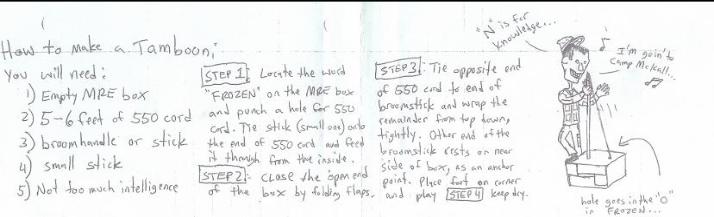 How to make a Tamboon;
You will need:
1) Empty MRE box
2) 5-6 feet of 550 cord
3) broomhandle or stick
4) small stick
5) Not too much intelligence
STEP 1: Locate the word
"FROZEN" on the MRE box
and punch a hole for 550
cord. Tie stick (small one) onto
the end of 550 cord and feed
it through from the inside.
STEP 2: close the open end
of the box by folding flaps.
STEP 3: Tie opposite end
of 550 cord to end of
broomstick and wrap the
remainder from top down,
tightly. Other end of the
broomstick rests on near
side of box, as an anchor
point. Place foot on corner
and play STEP 4 keep dry.
"N" is for
knowledge...
I'm goin' to
Camp Mckall...
hole goes in the "O"
in FROZEN...